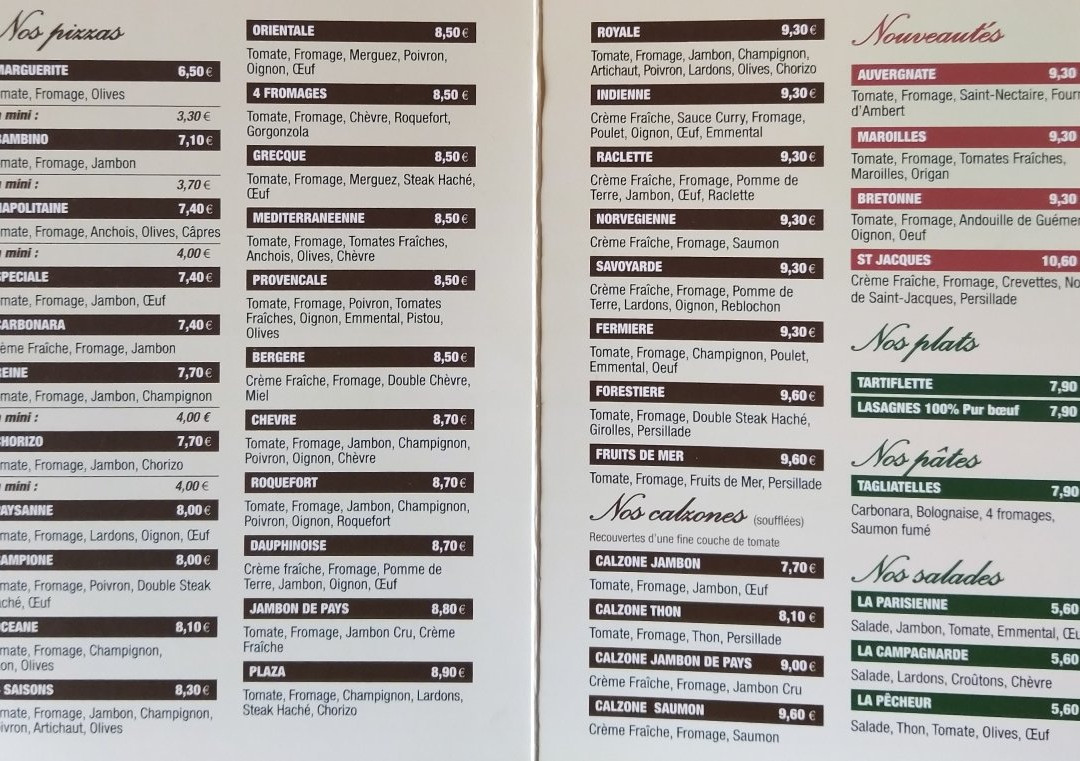 Nos pizzas
MARGUERITE 6,50 €
mate, Fromage, Olives
mini : 3,30 €
AMBINO 7,10 €
mate, Fromage, Jambon
mini : 3,70 €
APOLITAINE 7,40 €
mate, Fromage, Anchois, Olives, Câpres
mini : 4,00 €
PECIALE 7,40 €
mate, Fromage, Jambon, Œuf
ARBONARA 7,40 €
ème Fraîche, Fromage, Jambon
EINE 7,70 €
mate, Fromage, Jambon, Champignon
mini : 4,00 €
HORIZO 7,70 €
mate, Fromage, Jambon, Chorizo
mini : 4,00 €
AYSANNE 8,00 €
mate, Fromage, Lardons, Oignon, Œuf
AMPIONE 8,00 €
mate, Fromage, Poivron, Double Steak
ché, Œuf
CEANE 8,10 €
mate, Fromage, Champignon,
on, Olives
SAISONS 8,30 €
mate, Fromage, Jambon, Champignon,
ivron, Artichaut, Olives
ORIENTALE 8,50 €
Tomate, Fromage, Merguez, Poivron,
Oignon, Œuf
4 FROMAGES 8,50 €
Tomate, Fromage, Chèvre, Roquefort,
Gorgonzola
GRECQUE 8,50 €
Tomate, Fromage, Merguez, Steak Haché,
Œuf
MEDITERRANEENNE 8,50 €
Tomate, Fromage, Tomates Fraîches,
Anchois, Olives, Chèvre
PROVENCALE 8,50 €
Tomate, Fromage, Poivron, Tomates
Fraîches, Oignon, Emmental, Pistou,
Olives
BERGERE 8,50 €
Crème Fraîche, Fromage, Double Chèvre,
Miel
CHEVRE 8,70 €
Tomate, Fromage, Jambon, Champignon,
Poivron, Oignon, Chèvre
ROQUEFORT 8,70 €
Tomate, Fromage, Jambon, Champignon,
Poivron, Oignon, Roquefort
DAUPHINOISE 8,70 €
Crème fraîche, Fromage, Pomme de
Terre, Jambon, Oignon, Œuf
JAMBON DE PAYS 8,80 €
Tomate, Fromage, Jambon Cru, Crème
Fraîche
PLAZA 8,90 €
Tomate, Fromage, Champignon, Lardons,
Steak Haché, Chorizo
ROYALE 9,30 €
Tomate, Fromage, Jambon, Champignon,
Artichaut, Poivron, Lardons, Olives, Chorizo
INDIENNE 9,30 €
Crème Fraîche, Sauce Curry, Fromage,
Poulet, Oignon, Œuf, Emmental
RACLETTE 9,30 €
Crème Fraîche, Fromage, Pomme de
Terre, Jambon, Œuf, Raclette
NORVEGIENNE 9,30 €
Crème Fraîche, Fromage, Saumon
SAVOYARDE 9,30 €
Crème Fraîche, Fromage, Pomme de
Terre, Lardons, Oignon, Reblochon
FERMIERE 9,30 €
Tomate, Fromage, Champignon, Poulet,
Emmental, Oeuf
FORESTIERE 9,60 €
Tomate, Fromage, Double Steak Haché,
Girolles, Persillade
FRUITS DE MER 9,60 €
Tomate, Fromage, Fruits de Mer, Persillade
Nos calzones (soufflées)
Recouvertes d'une fine couche de tomate
CALZONE JAMBON 7,70 €
Tomate, Fromage, Jambon, Œuf
CALZONE THON 8,10 €
Tomate, Fromage, Thon, Persillade
CALZONE JAMBON DE PAYS 9,00 €
Crème Fraîche, Fromage, Jambon Cru
CALZONE SAUMON 9,60 €
Crème Fraîche, Fromage, Saumon
Nouveautés
AUVERGNATE 9,30
Tomate, Fromage, Saint-Nectaire, Fourm
d'Ambert
MAROILLES 9,30
Tomate, Fromage, Tomates Fraîches,
Maroilles, Origan
BRETONNE 9,30
Tomate, Fromage, Andouille de Guémen
Oignon, Oeuf
ST JACQUES 10,60
Crème Fraîche, Fromage, Crevettes, No
de Saint-Jacques, Persillade
Nos plats
TARTIFLETTE 7,90
LASAGNES 100% Pur bœuf 7,90
Nos pâtes
TAGLIATELLES 7,90
Carbonara, Bolognaise, 4 fromages,
Saumon fumé
Nos salades
LA PARISIENNE 5,60
Salade, Jambon, Tomate, Emmental, Œu
LA CAMPAGNARDE 5,60
Salade, Lardons, Croûtons, Chèvre
LA PÊCHEUR 5,60
Salade, Thon, Tomate, Olives, Œuf